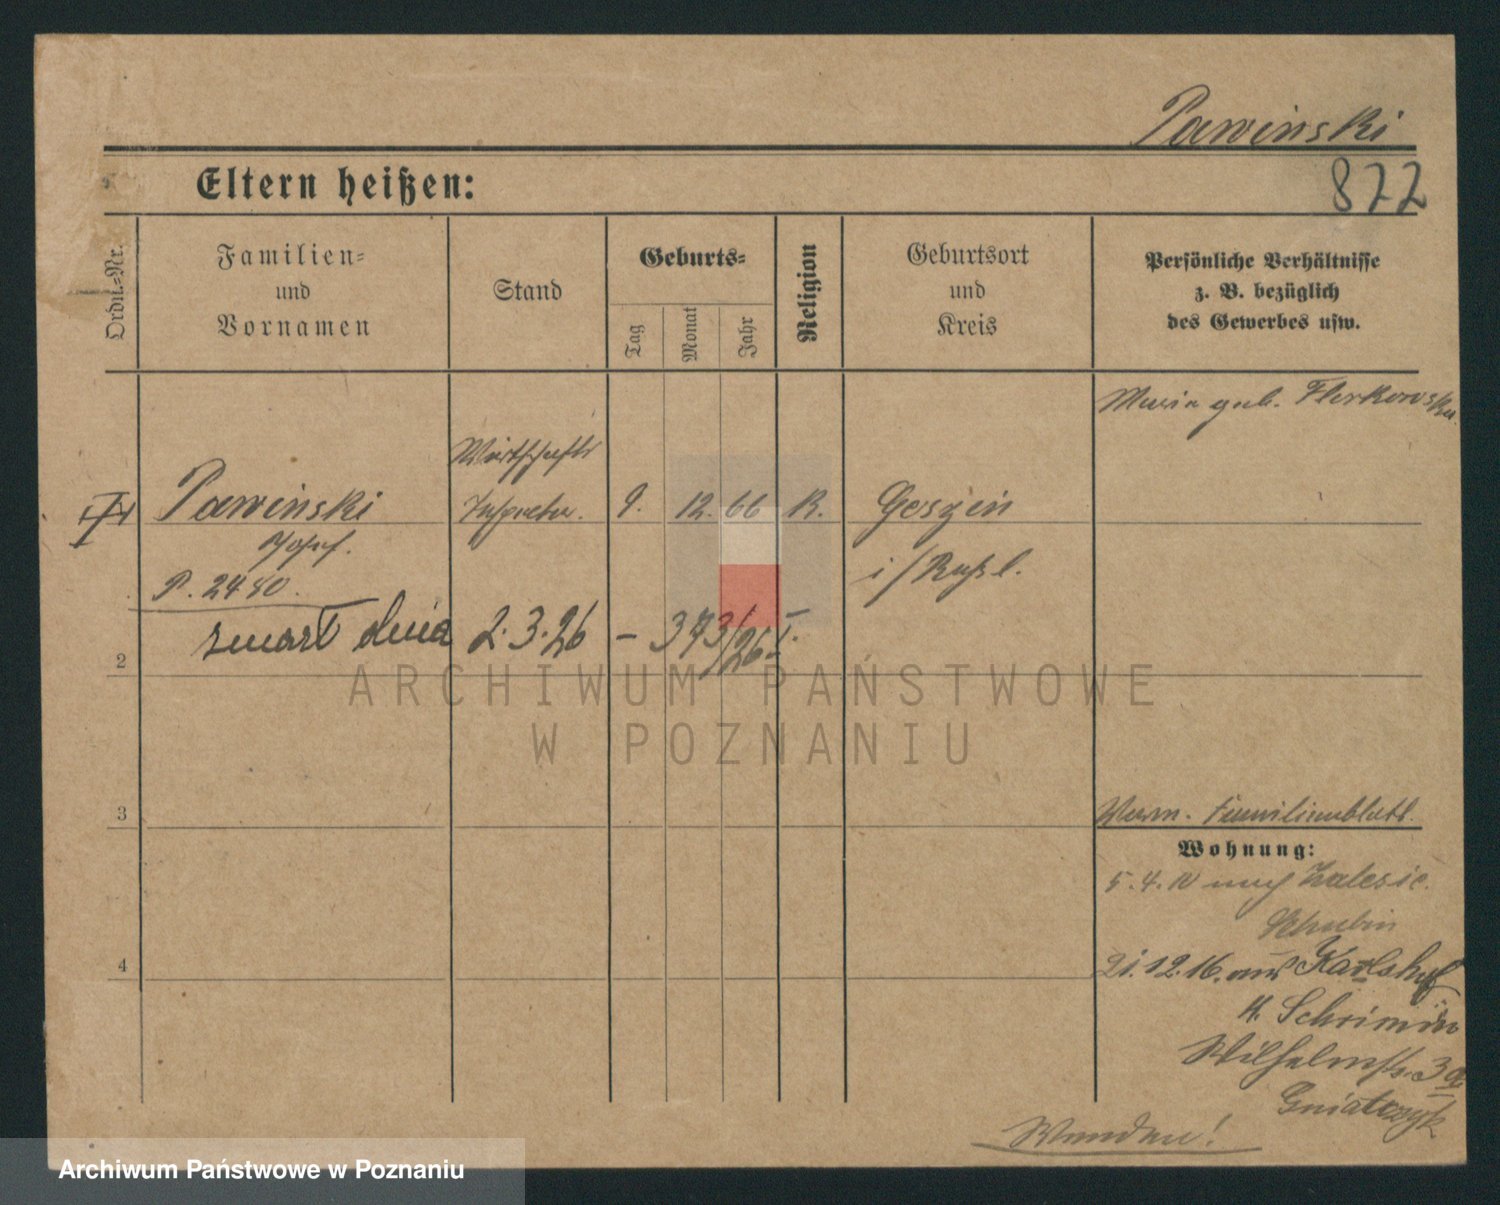 Pawinski
Eltern heißen:
877
Ordn.-Nr.
Familien-
und
Vornamen
Stand
Geburts-
Tag
Monat
Jahr
Religion
Geburtsort
und
Kreis
Persönliche Verhältnisse
z. B. bezüglich
des Gewerbes usw.
Maria geb. Florkowska
Wirtschafts
Pawinski
Inspektor.
9. 12. 66 K.
Geszin
Josef.
i/Rußl.
P. 2480.
zmarł dnia 2.3.26 – 373/26 I.
2
ARCHIWUM PAŃSTWOWE
W POZNANIU
3
Familienblatt.
Wohnung:
5.4. nach Zalesie
Schubin
4
21.12.16. aus Karlshof
K. Schrimm
Wilhelmstr. 3a
Gniatczyk
Wenden!
Archiwum Państwowe w Poznaniu